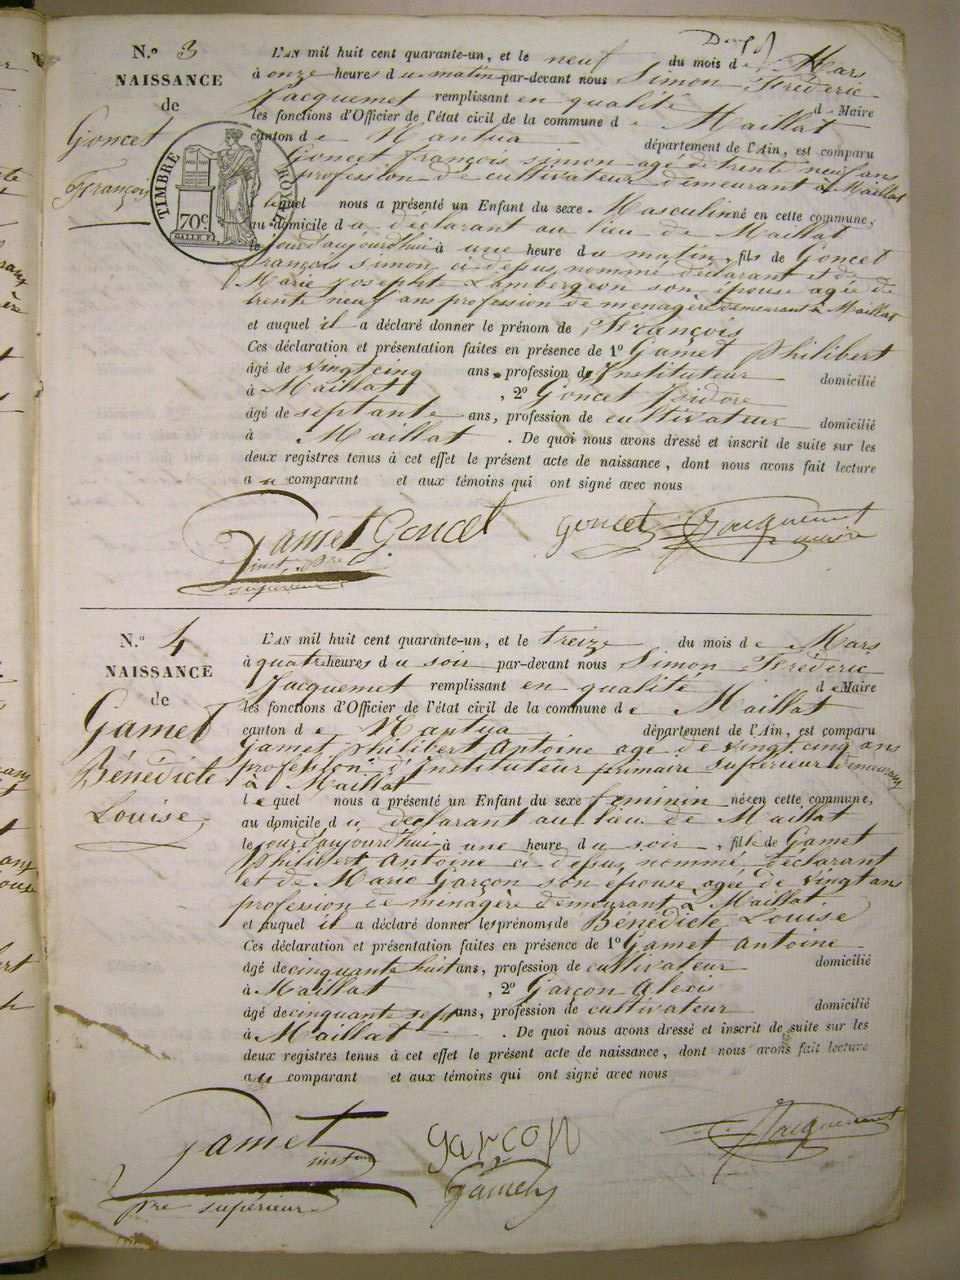 N.º 3
NAISSANCE
de
Goncet
François
TIMBRE ROYAL
70c
L'AN mil huit cent quarante-un, et le neuf du mois de Mars
à onze heures du matin par-devant nous Simon Fréderic
Jacquemet remplissant en qualité de Maire
les fonctions d'Officier de l'état civil de la commune de Maillat
canton de Nantua département de l'Ain, est comparu
Goncet françois simon agé de trente neuf ans
profession de cultivateur demeurant à Maillat
lequel nous a présenté un Enfant du sexe Masculin né en cette commune,
au domicile du déclarant au lieu de Maillat
le jour d'aujourdhui à une heure du matin, fils de Goncet
françois simon ci depus nommé déclarant et de
Marie Josephte Lambergeon son épouse agée de
trente neuf ans profession de menagère demeurant à Maillat
et auquel il a déclaré donner le prénom de François
Ces déclaration et présentation faites en présence de 1º Gamet Philibert
âgé de vingt cinq ans, profession d'Instituteur domicilié
à Maillat, 2º Goncet Isidore
âgé de septante ans, profession de cultivateur domicilié
à Maillat. De quoi nous avons dressé et inscrit de suite sur les
deux registres tenus à cet effet le présent acte de naissance, dont nous avons fait lecture
au comparant et aux témoins qui ont signé avec nous
Gamet Goncet goncet Jacquemet
maire
supérieur
N.º 4
NAISSANCE
de
Gamet
Bénédicte
Louise
L'AN mil huit cent quarante-un, et le treize du mois de Mars
à quatre heures du soir par-devant nous Simon Fréderic
Jacquemet remplissant en qualité de Maire
les fonctions d'Officier de l'état civil de la commune de Maillat
canton de Nantua département de l'Ain, est comparu
Gamet philibert Antoine age de vingt cinq ans
profession d'Instituteur primaire supérieur demeurant
à Maillat
lequel nous a présenté un Enfant du sexe feminin née en cette commune,
au domicile du déclarant au lieu de Maillat
le jour d'aujourdhui à une heure du soir, fille de Gamet
Philibert Antoine ci depus nommé déclarant
et de Marie Garçon son épouse agée de vingt ans
profession de menagère demeurant à Maillat
et auquel il a déclaré donner les prénoms de Bénédicte Louise
Ces déclaration et présentation faites en présence de 1º Gamet Antoine
âgé de cinquante huit ans, profession de cultivateur domicilié
à Maillat, 2º Garçon Alexis
âgé de cinquante sept ans, profession de cultivateur domicilié
à Maillat. De quoi nous avons dressé et inscrit de suite sur les
deux registres tenus à cet effet le présent acte de naissance, dont nous avons fait lecture
au comparant et aux témoins qui ont signé avec nous
Gamet garçon Jacquemet
Gamet
pre supérieur